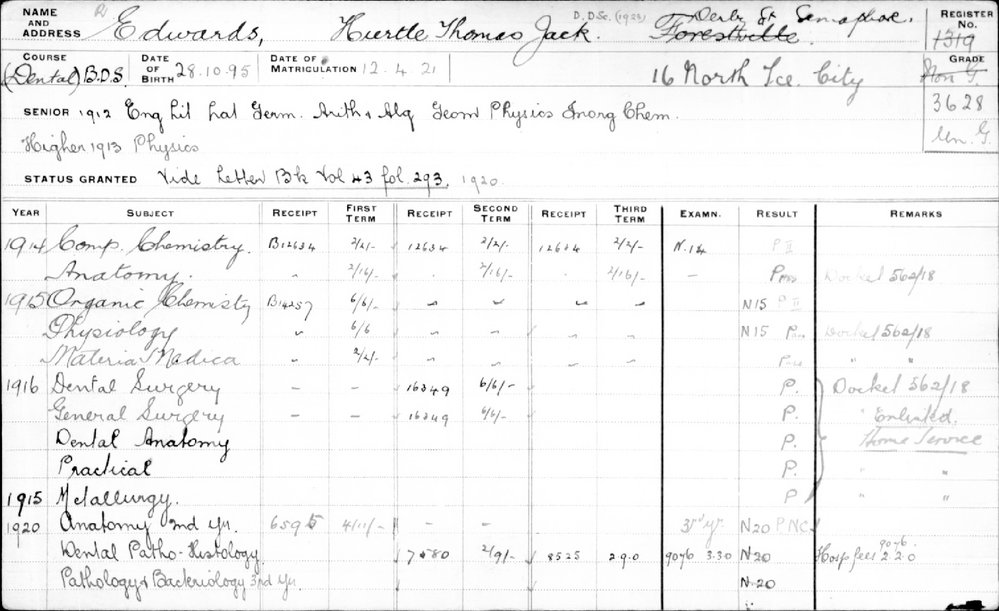 NAME AND ADDRESS Edwards, Hurtle Thomas Jack. D.DSc. (1923) Derby St Semaphore. Forestville. REGISTER No. 1319
COURSE (Dental) B.D.S. DATE OF BIRTH 28.10.95 DATE OF MATRICULATION 12.4.21 16 North Tce. City GRADE Non G.
SENIOR 1912 Eng Lit Lat Germ. Arith & Alg Geom Physics Inorg Chem. 3628
Higher 1913 Physics Un. G.
STATUS GRANTED Vide Letter Bk Vol 43 fol. 293. 1920.
YEAR SUBJECT RECEIPT FIRST TERM RECEIPT SECOND TERM RECEIPT THIRD TERM EXAMN. RESULT REMARKS
1914 Comp. Chemistry. B12634 2/2/- 12634 2/2/- 12634 2/2/- N.14 P II
Anatomy. " 2/16/- 2/16/- 2/16/- — P Docket 562/18
1915 Organic Chemisty B14257 6/6/- " " " " N15 P II
Physiology " 6/6 " " " " N15 P Docket 562/18
Materia Medica " 2/2/- " " " " " "
1916 Dental Surgery – – 16349 6/6/- P. Docket 562/18
General Surgery – – 16349 6/6/- P. " Enlisted.
Dental Anatomy P. Home Service
Practical P. " "
1915 Metallurgy. P " "
1920 Anatomy 2nd Yr. 6595 4/11/- – – 3rd yr. N20 P.NC.
Dental Patho-Histology 7480 2/9/- 8525 2.9.0 9076 3.3.0 N20 Hosp fees 9076. 2.2.0
Pathology & Backriology 3rd Yr. N20